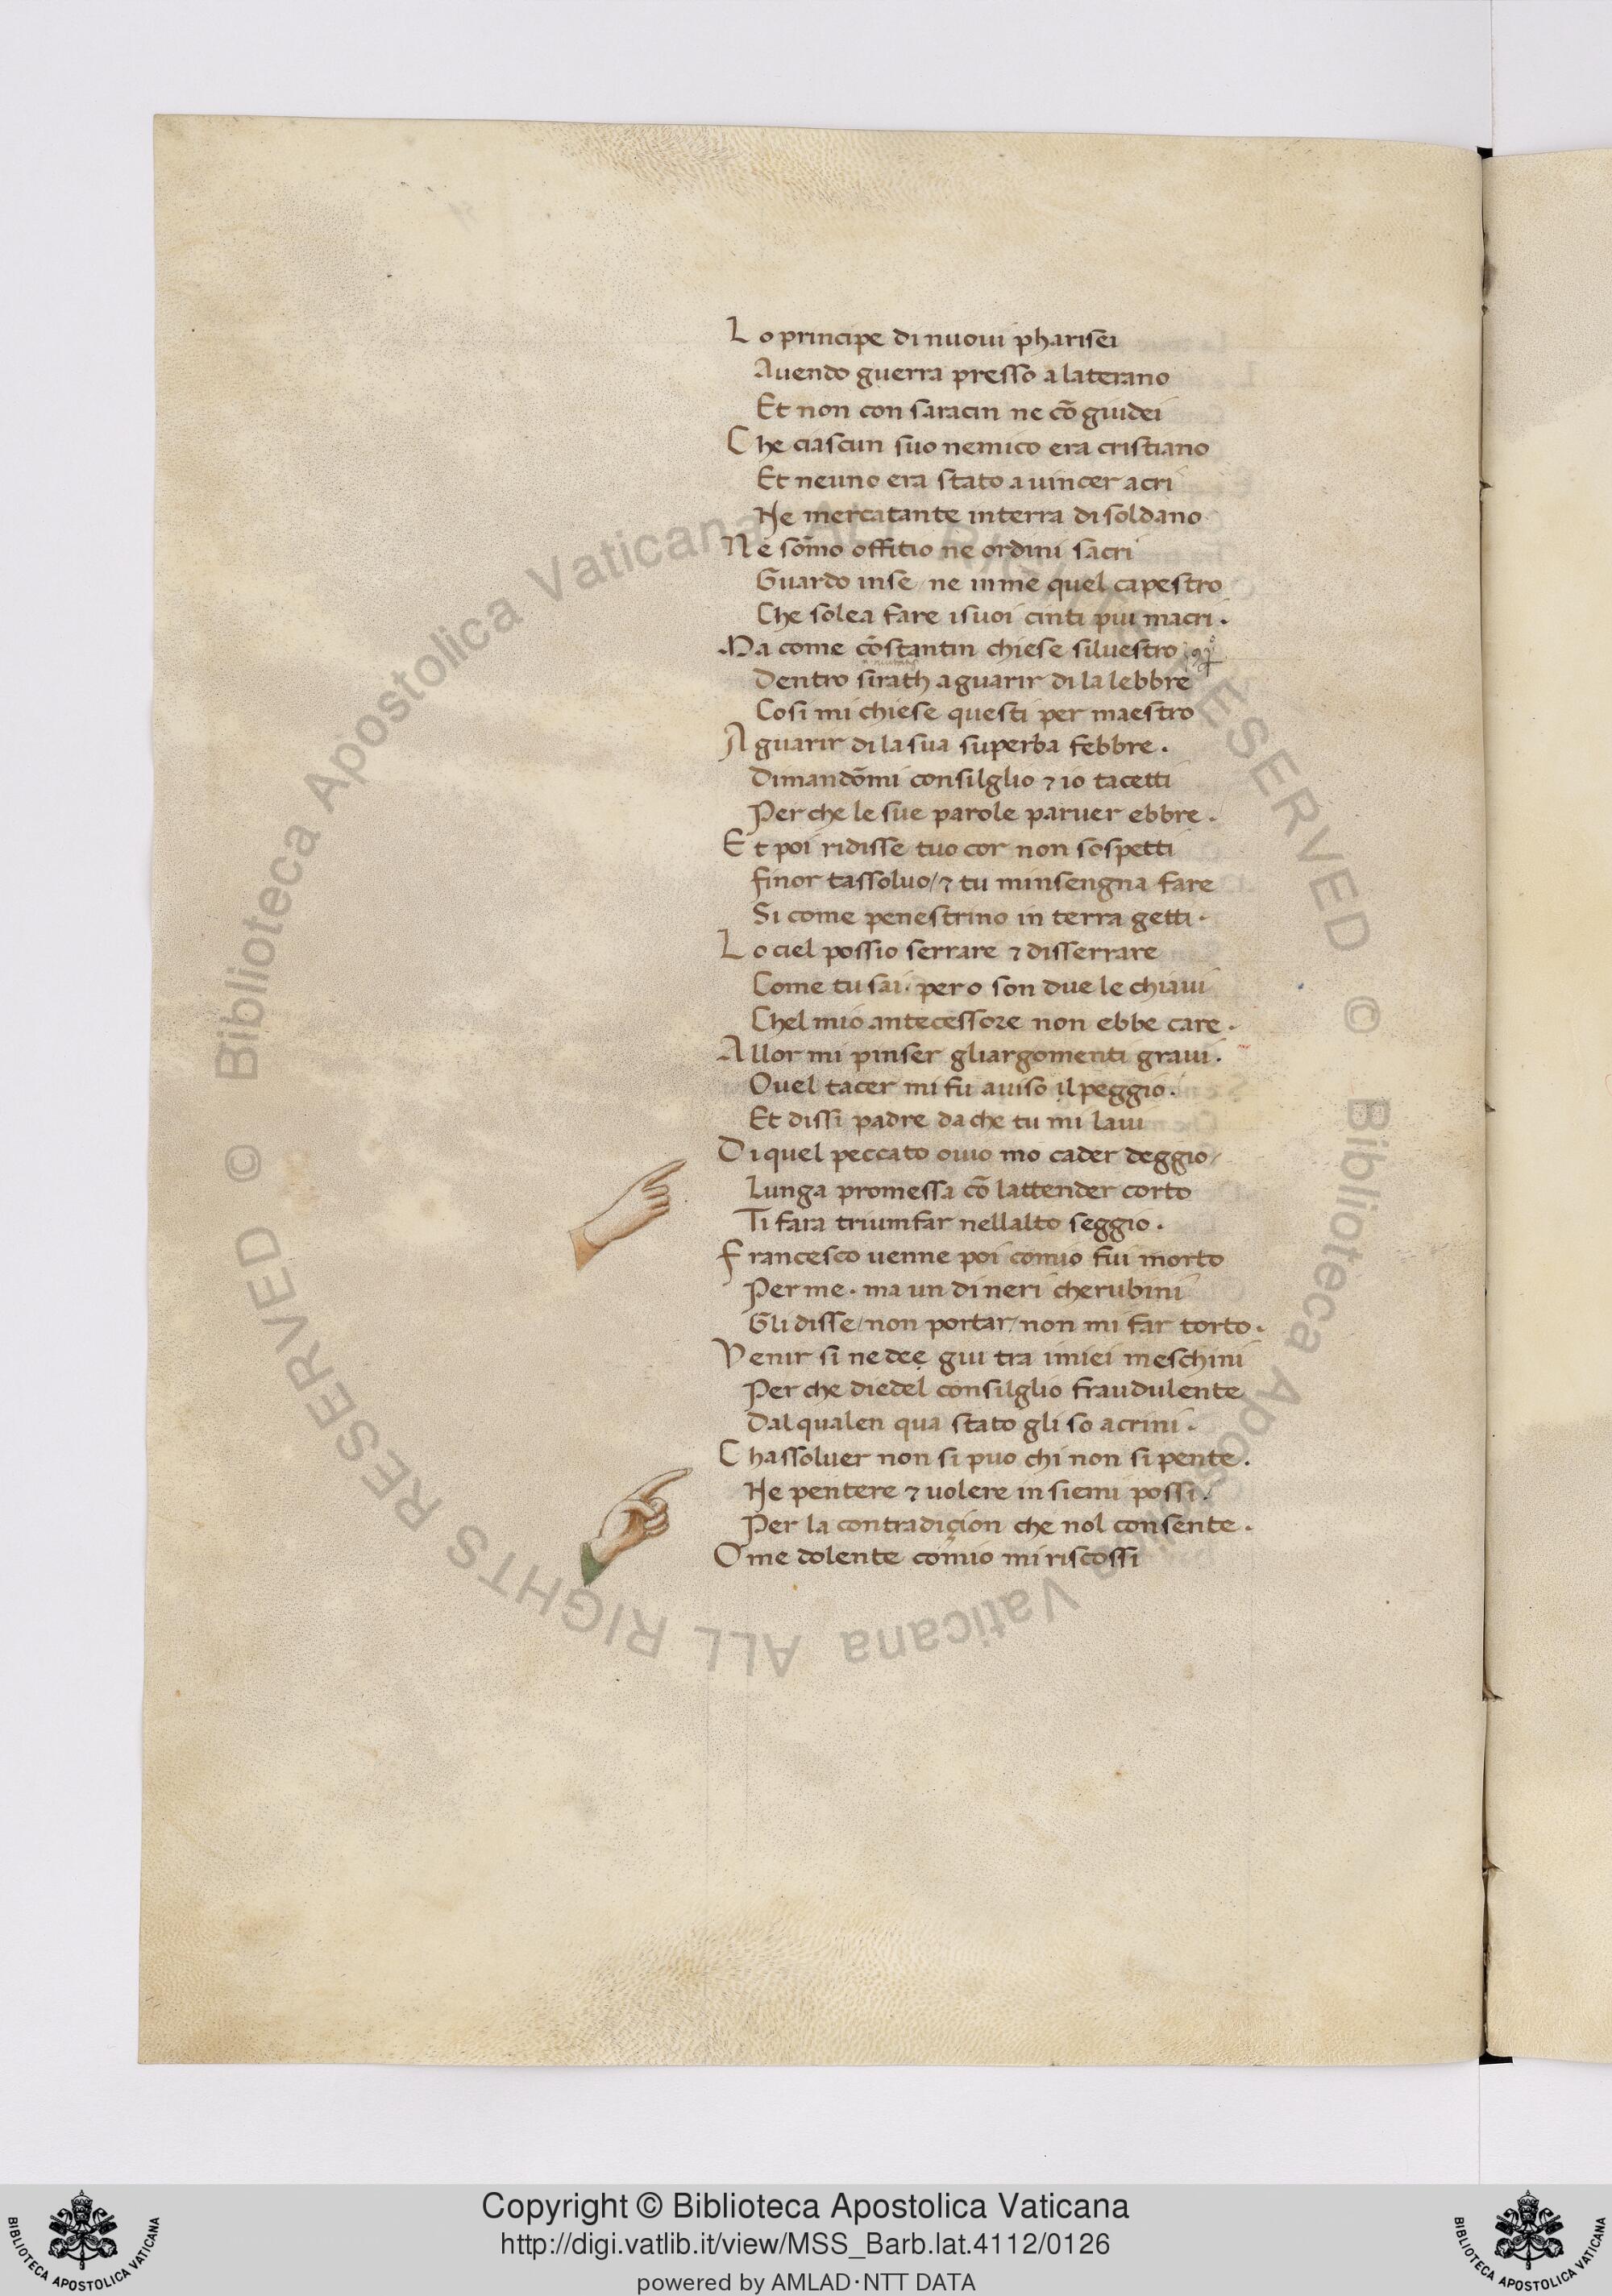 Lo principe di nuoui pharisei
Auendo guerra presso a laterano
Et non con saracin ne cō giudei
Che ciascun suo nemico era cristiano
Et neuno era stato a uincer acri
Ne mercatante interra di soldano
Ne sōmo offitio ne ordini sacri
Guardo inse / ne inme quel capestro
Che solea fare isuoi cinti piu macri .
Ma come cōstantin chiese siluestro
Dentro sirath aguarir di la lebbre
Cosi mi chiese questi per maestro
A guarir di la sua superba febbre .
Dimandōmi consilglio ⁊ io tacetti
Per che le sue parole paruer ebbre .
Et poi ridisse tuo cor non sospetti
finor tassoluo / ⁊ tu minsengna fare
Si come penestrino in terra getti .
Lo ciel possio serrare ⁊ disserrare
Come tu sai . pero son due le chiaui
Chel mio antecessore non ebbe care .
Allor mi pinser gliargomenti graui .
Ouel tacer mi fu auiso il peggio .
Et dissi padre da che tu mi laui
Di quel peccato ouio mo cader deggio /
Lunga promessa cō lattender corto
Ti fara triumfar nellalto seggio .
Francesco uenne poi comio fui morto
Per me . ma un di neri cherubini
Gli disse / non portar / non mi far torto .
Venir si ne dee giu tra imiei meschini
Per che diedel consilglio fraudulente
Dal qualen qua stato gli so acrini .
Chassoluer non si puo chi non si pente .
Ne pentere ⁊ uolere insiemi possi .
Per la contradiçion che nol consente .
Ome dolente comio mi riscossi
© Biblioteca Apostolica Vaticana ALL RIGHTS RESERVED © Biblioteca Apostolica Vaticana ALL RIGHTS RESERVED
Copyright © Biblioteca Apostolica Vaticana
http://digi.vatlib.it/view/MSS_Barb.lat.4112/0126
powered by AMLAD·NTT DATA
BIBLIOTECA APOSTOLICA VATICANA
BIBLIOTECA APOSTOLICA VATICANA